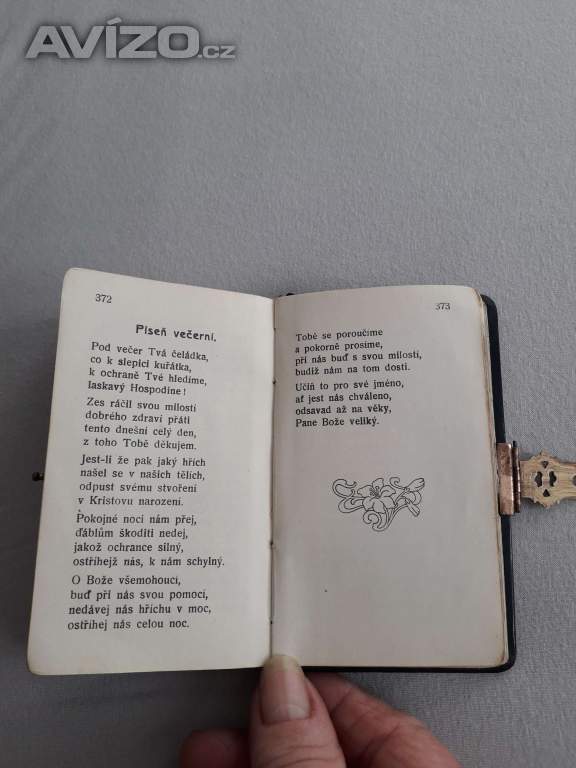 AVÍZO.cz
372
Píseň večerní.
Pod večer Tvá čeládka,
co k slepici kuřátka,
k ochraně Tvé hledíme,
laskavý Hospodine!
Žes ráčil svou milostí
dobrého zdraví přáti
tento dnešní celý den,
z toho Tobě děkujem.
Jest-li že pak jaký hřích
našel se v našich tělích,
odpust svému stvoření
v Kristovu narození.
Pokojné noci nám přej,
ďáblům škoditi nedej,
jakož ochrance silný,
ostříhejž nás, k nám schylný.
O Bože všemohoucí,
buď při nás svou pomocí,
nedávej nás hříchu v moc,
ostříhej nás celou noc.
373
Tobě se poroučíme
a pokorně prosíme,
při nás buď s svou milostí,
budiž nám na tom dosti.
Učiň to pro své jméno,
ať jest nás chváleno,
odsavad až na věky,
Pane Bože veliký.